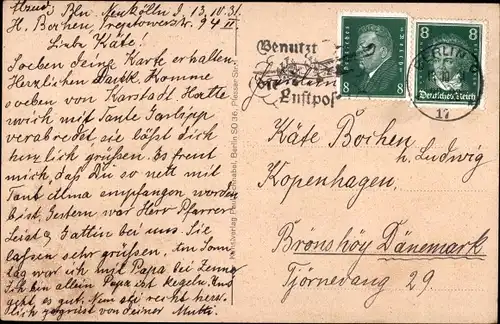 Absd. Bln. Neukölln I, 13.10.31.
H. Bochen, 94 II
Liebe Käte!
Soeben Deine Karte erhalten
Herzlichen Dank. Komme
soeben von Karstadt. Hatte
mich mit Tante
verabredet sie läßt dich
herzlich grüßen. Es freut
mich, daß Du so nett mit
Tant Alma empfangen worden
bist. Gestern war Herr Pfarrer
Leist & Gattin bei uns. Sie
lassen sehr grüßen. Am Sonn
tag war ich mit Papa bei
Ich bin allein Papa ist Kegeln. Uns
geht es gut. Nun sei recht herz
lich gegrüst von deiner Mutti.
Kunstverlag Paul Schnabel, Berlin SO 36, Plesser-Str.
Benutzt
die
Luftpost
Deutsches Reich
8 8
8 8
Deutsches Reich
BERLIN
17
Käte Bochen
b. Ludwig
Kopenhagen.
Brönshöy Dänemark
Tjörnevang 29